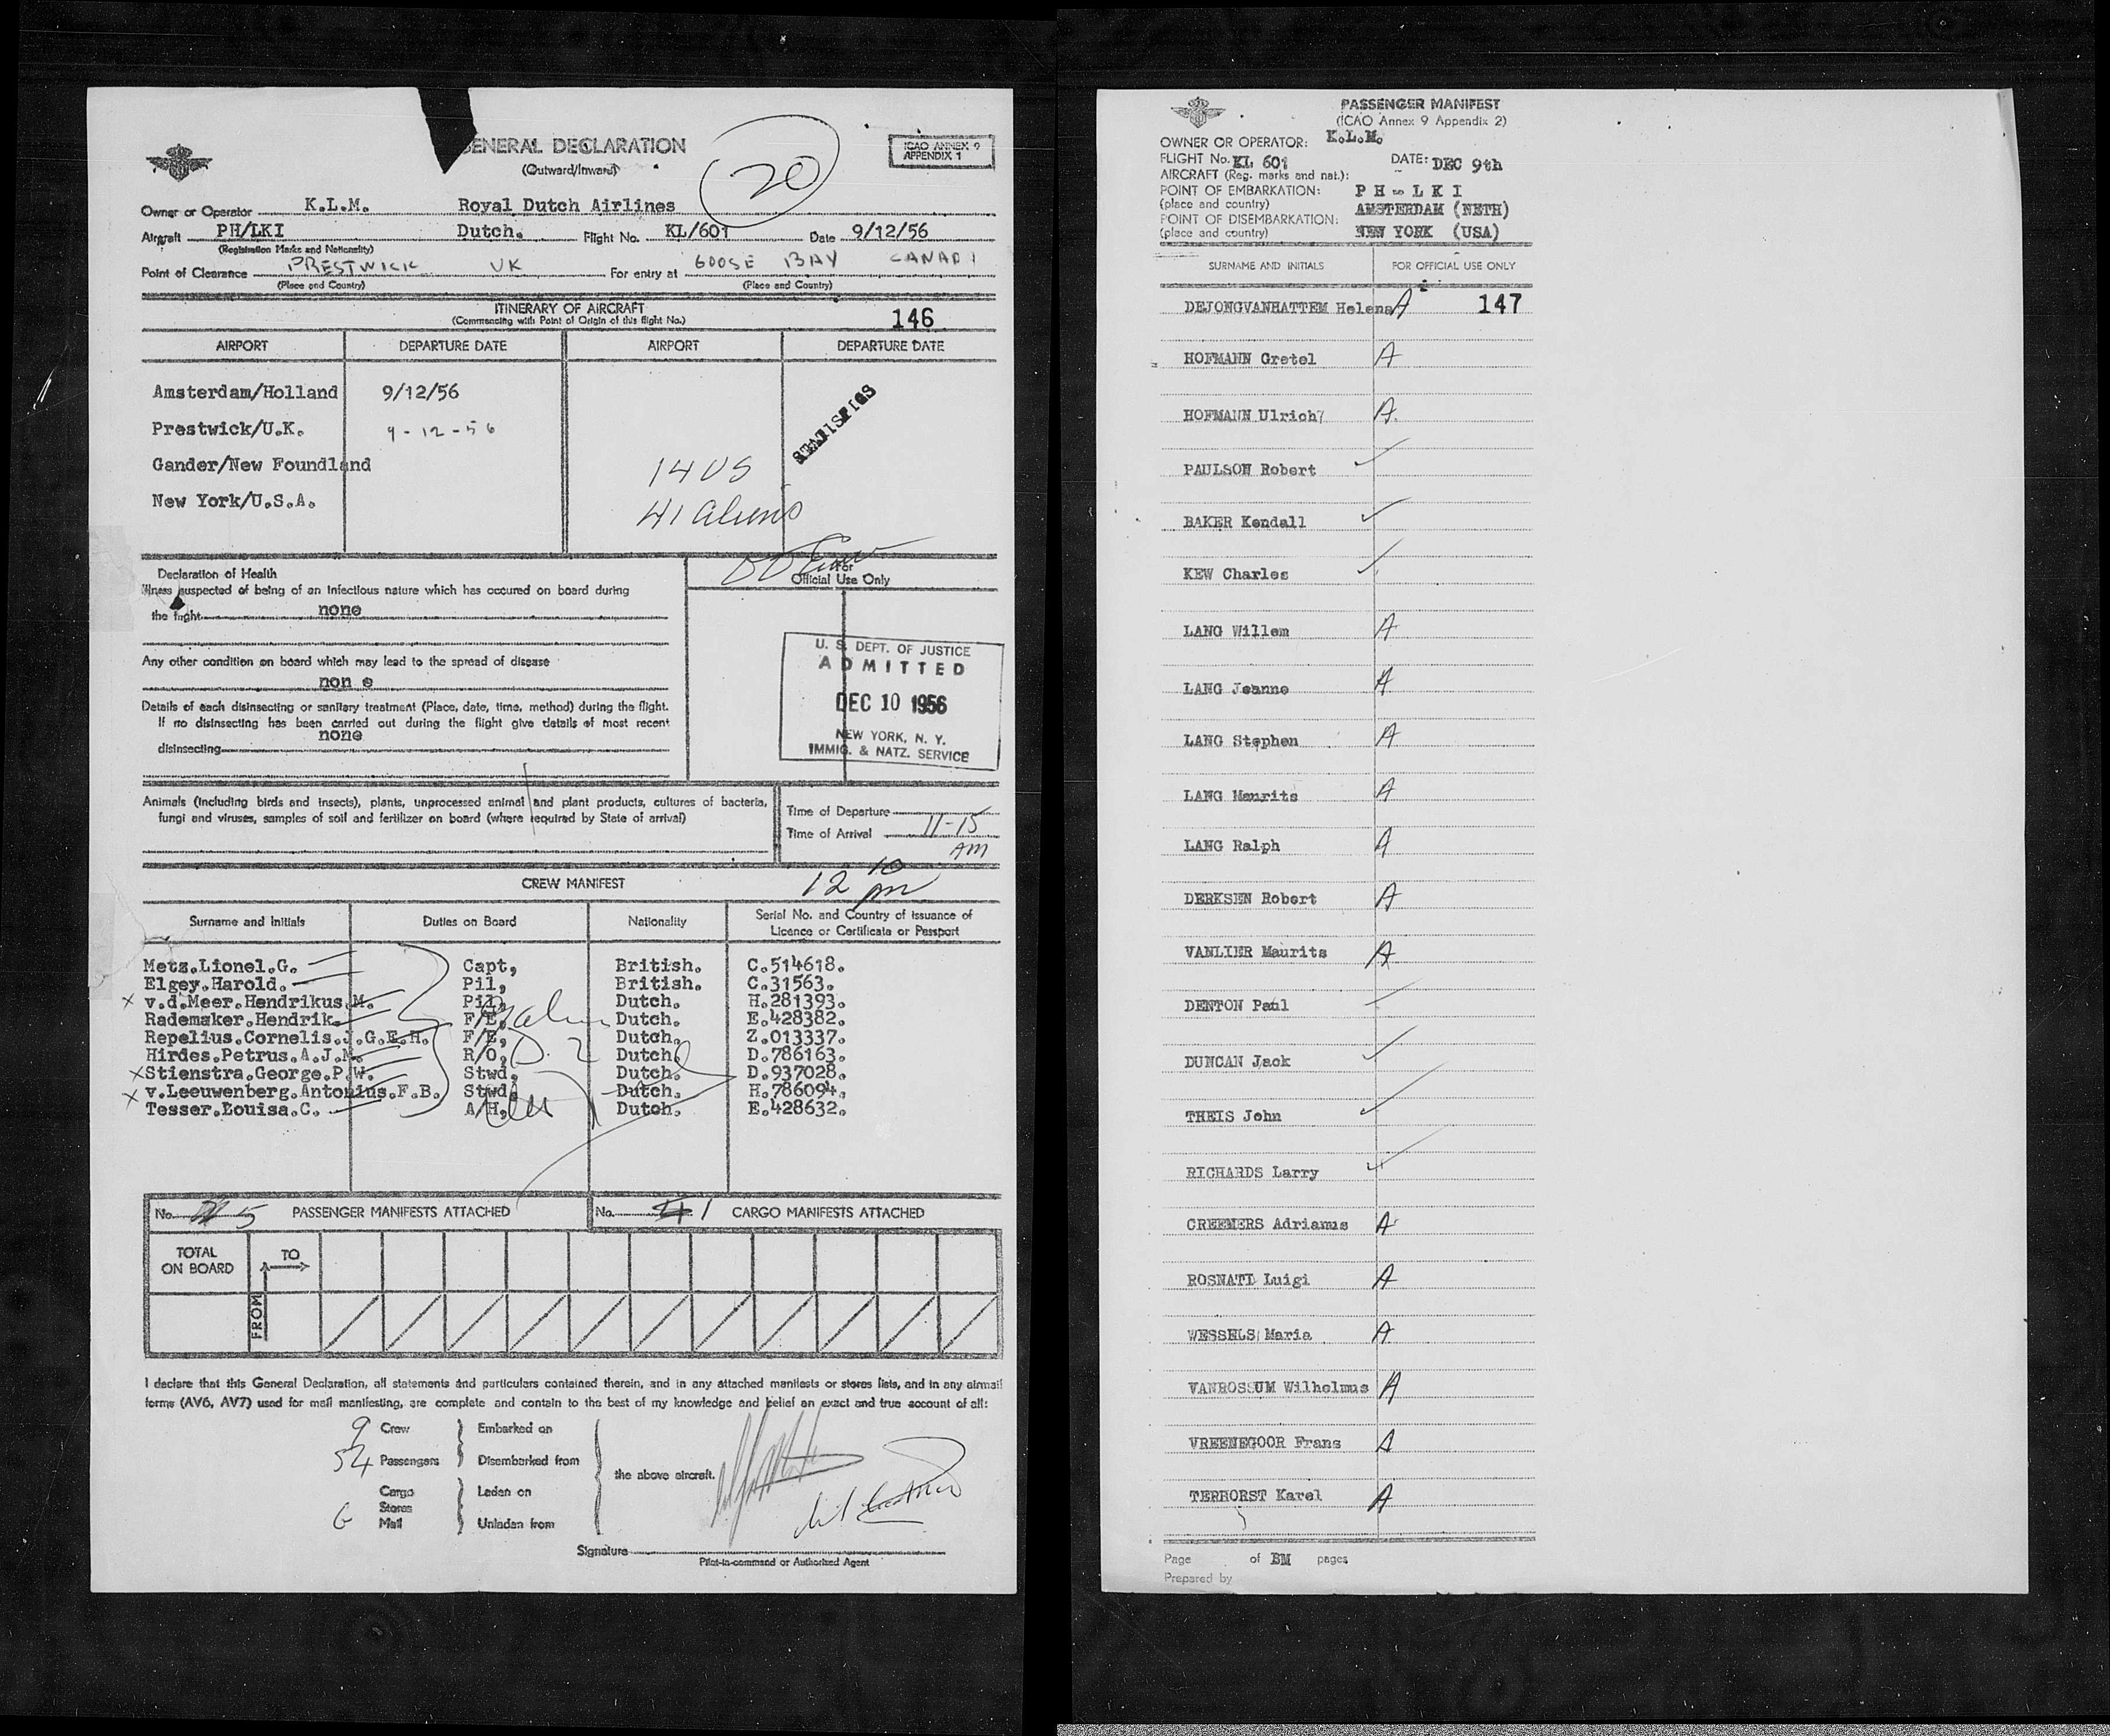 GENERAL DECLARATION
(Outward/Inward)
20
ICAO ANNEX 9
APPENDIX 1
Owner or Operator K.L.M. Royal Dutch Airlines
Aircraft PH/LKI Dutch. Flight No. KL/601 Date 9/12/56
(Registration Marks and Nationality)
Point of Clearance PRESTWICK UK For entry at GOOSE BAY CANADA
(Place and Country) (Place and Country)
ITINERARY OF AIRCRAFT
(Commencing with Point of Origin of this flight No.)
146
AIRPORT DEPARTURE DATE AIRPORT DEPARTURE DATE
Amsterdam/Holland 9/12/56
Prestwick/U.K. 9-12-56
Gander/New Foundland
New York/U.S.A.
STATISTICS
14 US
41 aliens
Declaration of Health
Illness suspected of being of an infectious nature which has occured on board during
the flight none
For
Official Use Only
Any other condition on board which may lead to the spread of disease
non e
Details of each disinsecting or sanitary treatment (Place, date, time, method) during the flight.
If no disinsecting has been carried out during the flight give details of most recent
none
disinsecting
U. S. DEPT. OF JUSTICE
ADMITTED
DEC 10 1956
NEW YORK, N. Y.
IMMIG. & NATZ. SERVICE
Animals (including birds and insects), plants, unprocessed animal and plant products, cultures of bacteria,
fungi and viruses, samples of soil and fertilizer on board (where required by State of arrival)
Time of Departure
Time of Arrival 11-15
AM
12 10
pm
CREW MANIFEST
Surname and Initials Duties on Board Nationality Serial No. and Country of Issuance of
Licence or Certificate or Passport
Metz.Lionel.G. Capt, British. C.514618.
Elgey.Harold. Pil, British. C.31563.
x v.d.Meer.Hendrikus.M. Pil, Dutch. H.281393.
Rademaker.Hendrik. F/E, Dutch. E.428382.
Repelius.Cornelis.J.G.E.H. F/E, Dutch. Z.013337.
Hirdes.Petrus.A.J.M. R/O, Dutch. D.786163.
x Stienstra.George.P.W. Stwd, Dutch. D.937028.
x v.Leeuwenberg.Antonius.F.B. Stwd, Dutch. H.786094.
Tesser.Louisa.C. A/H, Dutch. E.428632.
No. 5 PASSENGER MANIFESTS ATTACHED No. 1 CARGO MANIFESTS ATTACHED
TOTAL
ON BOARD
TO
FROM
I declare that this General Declaration, all statements and particulars contained therein, and in any attached manifests or stores lists, and in any airmail
forms (AV6, AV7) used for mail manifesting, are complete and contain to the best of my knowledge and belief an exact and true account of all:
9 Crew Embarked on
54 Passengers Disembarked from
the above aircraft.
Cargo Laden on
Stores
Mail Unladen from
Signature
Pilot-in-command or Authorized Agent
PASSENGER MANIFEST
(ICAO Annex 9 Appendix 2)
OWNER OR OPERATOR: K.L.M.
FLIGHT No. KL 601 DATE: DEC 9th
AIRCRAFT (Reg. marks and nat.):
POINT OF EMBARKATION: PH-LKI
(place and country) AMSTERDAM (NETH)
POINT OF DISEMBARKATION:
(place and country) NEW YORK (USA)
SURNAME AND INITIALS FOR OFFICIAL USE ONLY
DEJONGVANHATTEM Helena A 147
HOFMANN Gretel A
HOFMANN Ulrich A
PAULSON Robert
BAKER Kendall
KEW Charles
LANG Willem A
LANG Jeanne A
LANG Stephen A
LANG Maurits A
LANG Ralph A
DERKSEN Robert A
VANLIER Maurits A
DENTON Paul
DUNCAN Jack
THEIS John
RICHARDS Larry
CREEMERS Adrianus A
ROSNATI Luigi A
WESSELS Maria A
VANROSSUM Wilhelmus A
VREENEGOOR Frans A
TERHORST Karel A
Page of BM pages
Prepared by